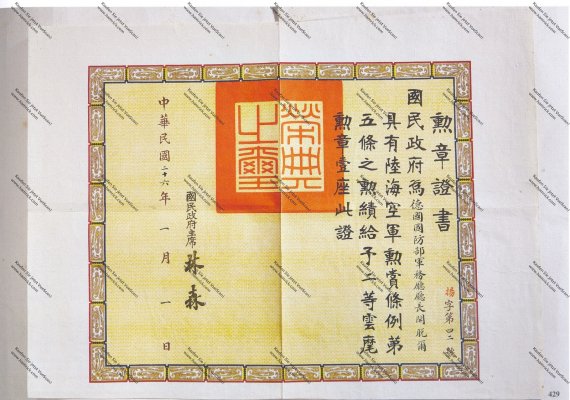 勳章證書
揚字第四二號
國民政府為德國國防部軍務廳廳長閔脫爾
具有陸海空軍勳賞條例第
五條之勳績給予二等雲麾
勳章壹座此證
榮典之璽
國民政府主席 林森
中華民國二十六年一月一日
429